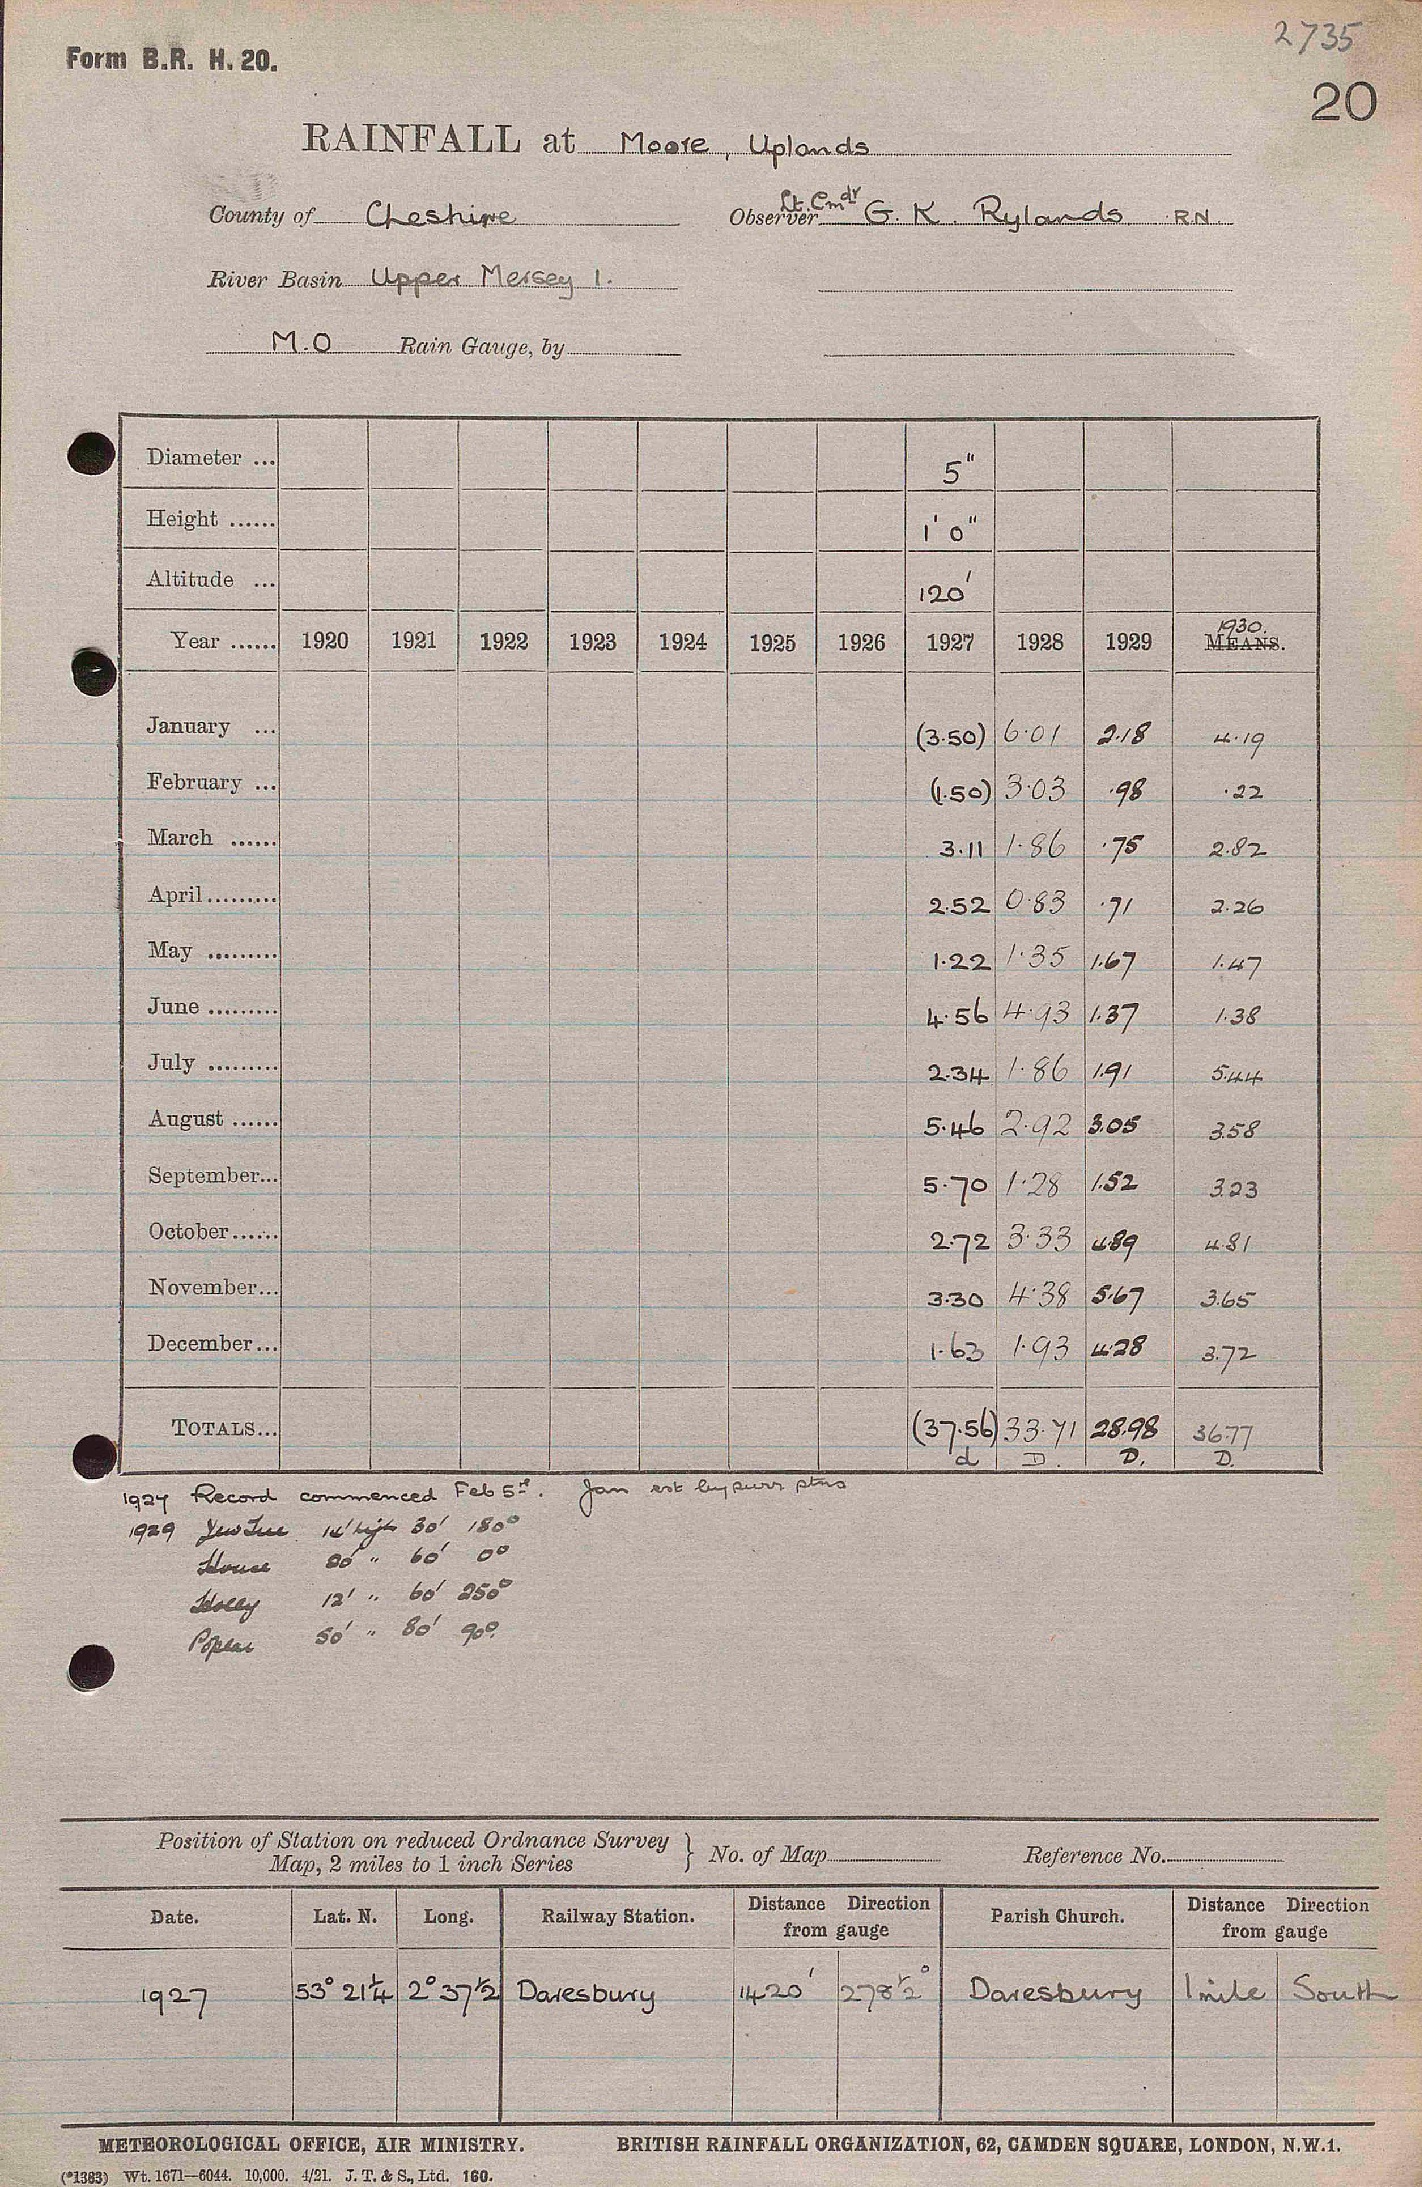 2735
Form B.R. H. 20.
20
RAINFALL at Moore, Uplands
County of Cheshire Observer Lt. Cmdr G. K. Rylands RN
River Basin Upper Mersey 1.
M.O Rain Gauge, by
Diameter ... 5"
Height ...... 1' 0"
Altitude ... 120'
Year ...... 1920 1921 1922 1923 1924 1925 1926 1927 1928 1929 1930. MEANS.
January ... (3.50) 6.01 2.18 4.19
February ... (1.50) 3.03 .98 .22
March ...... 3.11 1.86 .75 2.82
April ......... 2.52 0.83 .71 2.26
May ......... 1.22 1.35 1.67 1.47
June ......... 4.56 4.93 1.37 1.38
July ......... 2.34 1.86 1.91 5.44
August ...... 5.46 2.92 3.05 3.58
September... 5.70 1.28 1.52 3.23
October...... 2.72 3.33 4.89 4.81
November... 3.30 4.38 5.67 3.65
December... 1.63 1.93 4.28 3.72
TOTALS... (37.56) 33.71 28.98 36.77
d D. D. D.
1927 Record commenced Feb 5th. Jan est by surr stns
1929 Yew Tree 14' high 30' 180°
House 20' " 60' 0°
Holly 12' " 60' 250°
Poplar 50' " 80' 90°
Position of Station on reduced Ordnance Survey
Map, 2 miles to 1 inch Series } No. of Map Reference No.
Date. Lat. N. Long. Railway Station. Distance Direction from gauge Parish Church. Distance Direction from gauge
1927 53° 21¼ 2° 37½ Daresbury 1420' 278½° Daresbury 1 mile South
METEOROLOGICAL OFFICE, AIR MINISTRY. BRITISH RAINFALL ORGANIZATION, 62, CAMDEN SQUARE, LONDON, N.W.1.
(*1383) Wt. 1671—6044. 10,000. 4/21. J. T. & S., Ltd. 160.